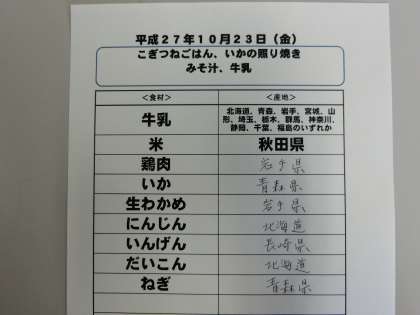 平成27年10月23日（金）
こぎつねごはん、いかの照り焼き
みそ汁、牛乳
＜食材＞ ＜産地＞
牛乳 北海道、青森、岩手、宮城、山
形、埼玉、栃木、群馬、神奈川、
静岡、千葉、福島のいずれか
米 秋田県
鶏肉 岩手県
いか 青森県
生わかめ 岩手県
にんじん 北海道
いんげん 長崎県
だいこん 北海道
ねぎ 青森県